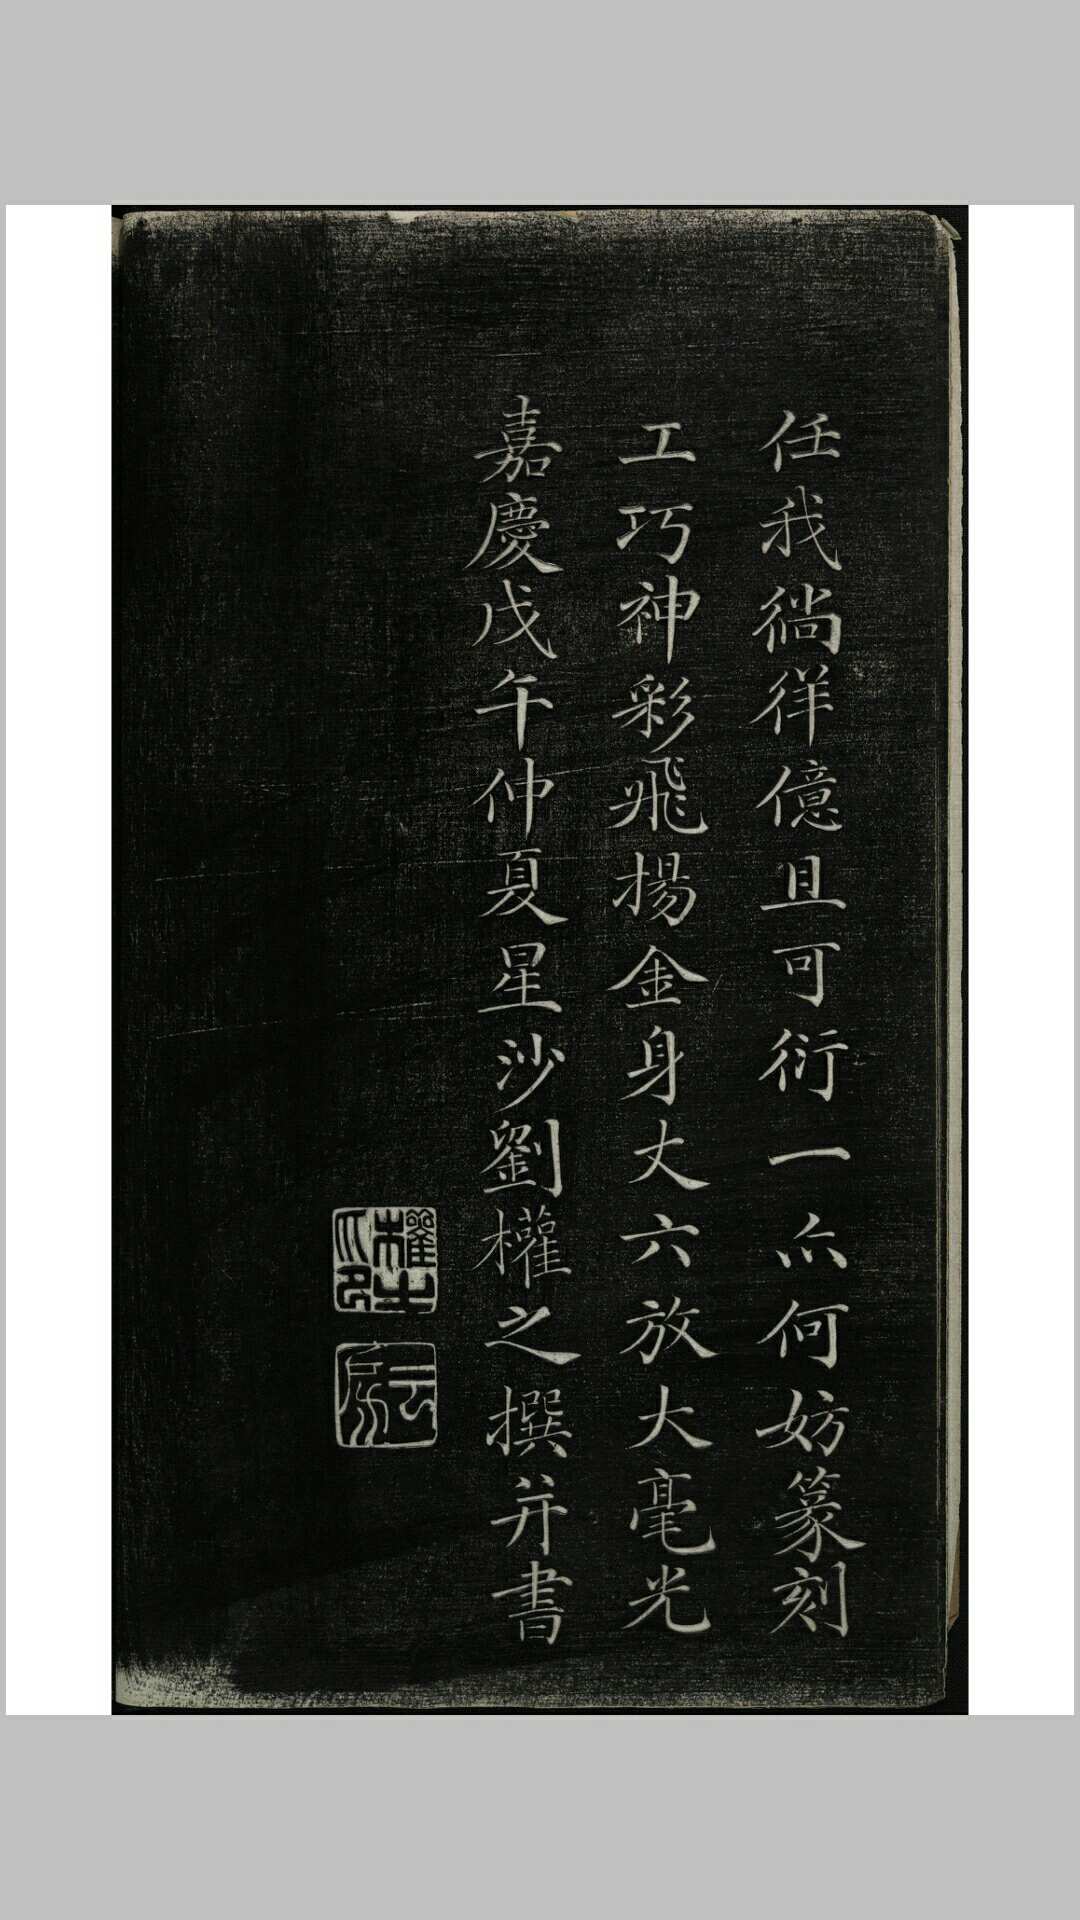 任我徜徉億且可衍一亦何妨篆刻
工巧神彩飛揚金身丈六放大毫光
嘉慶戊午仲夏星沙劉權之撰并書